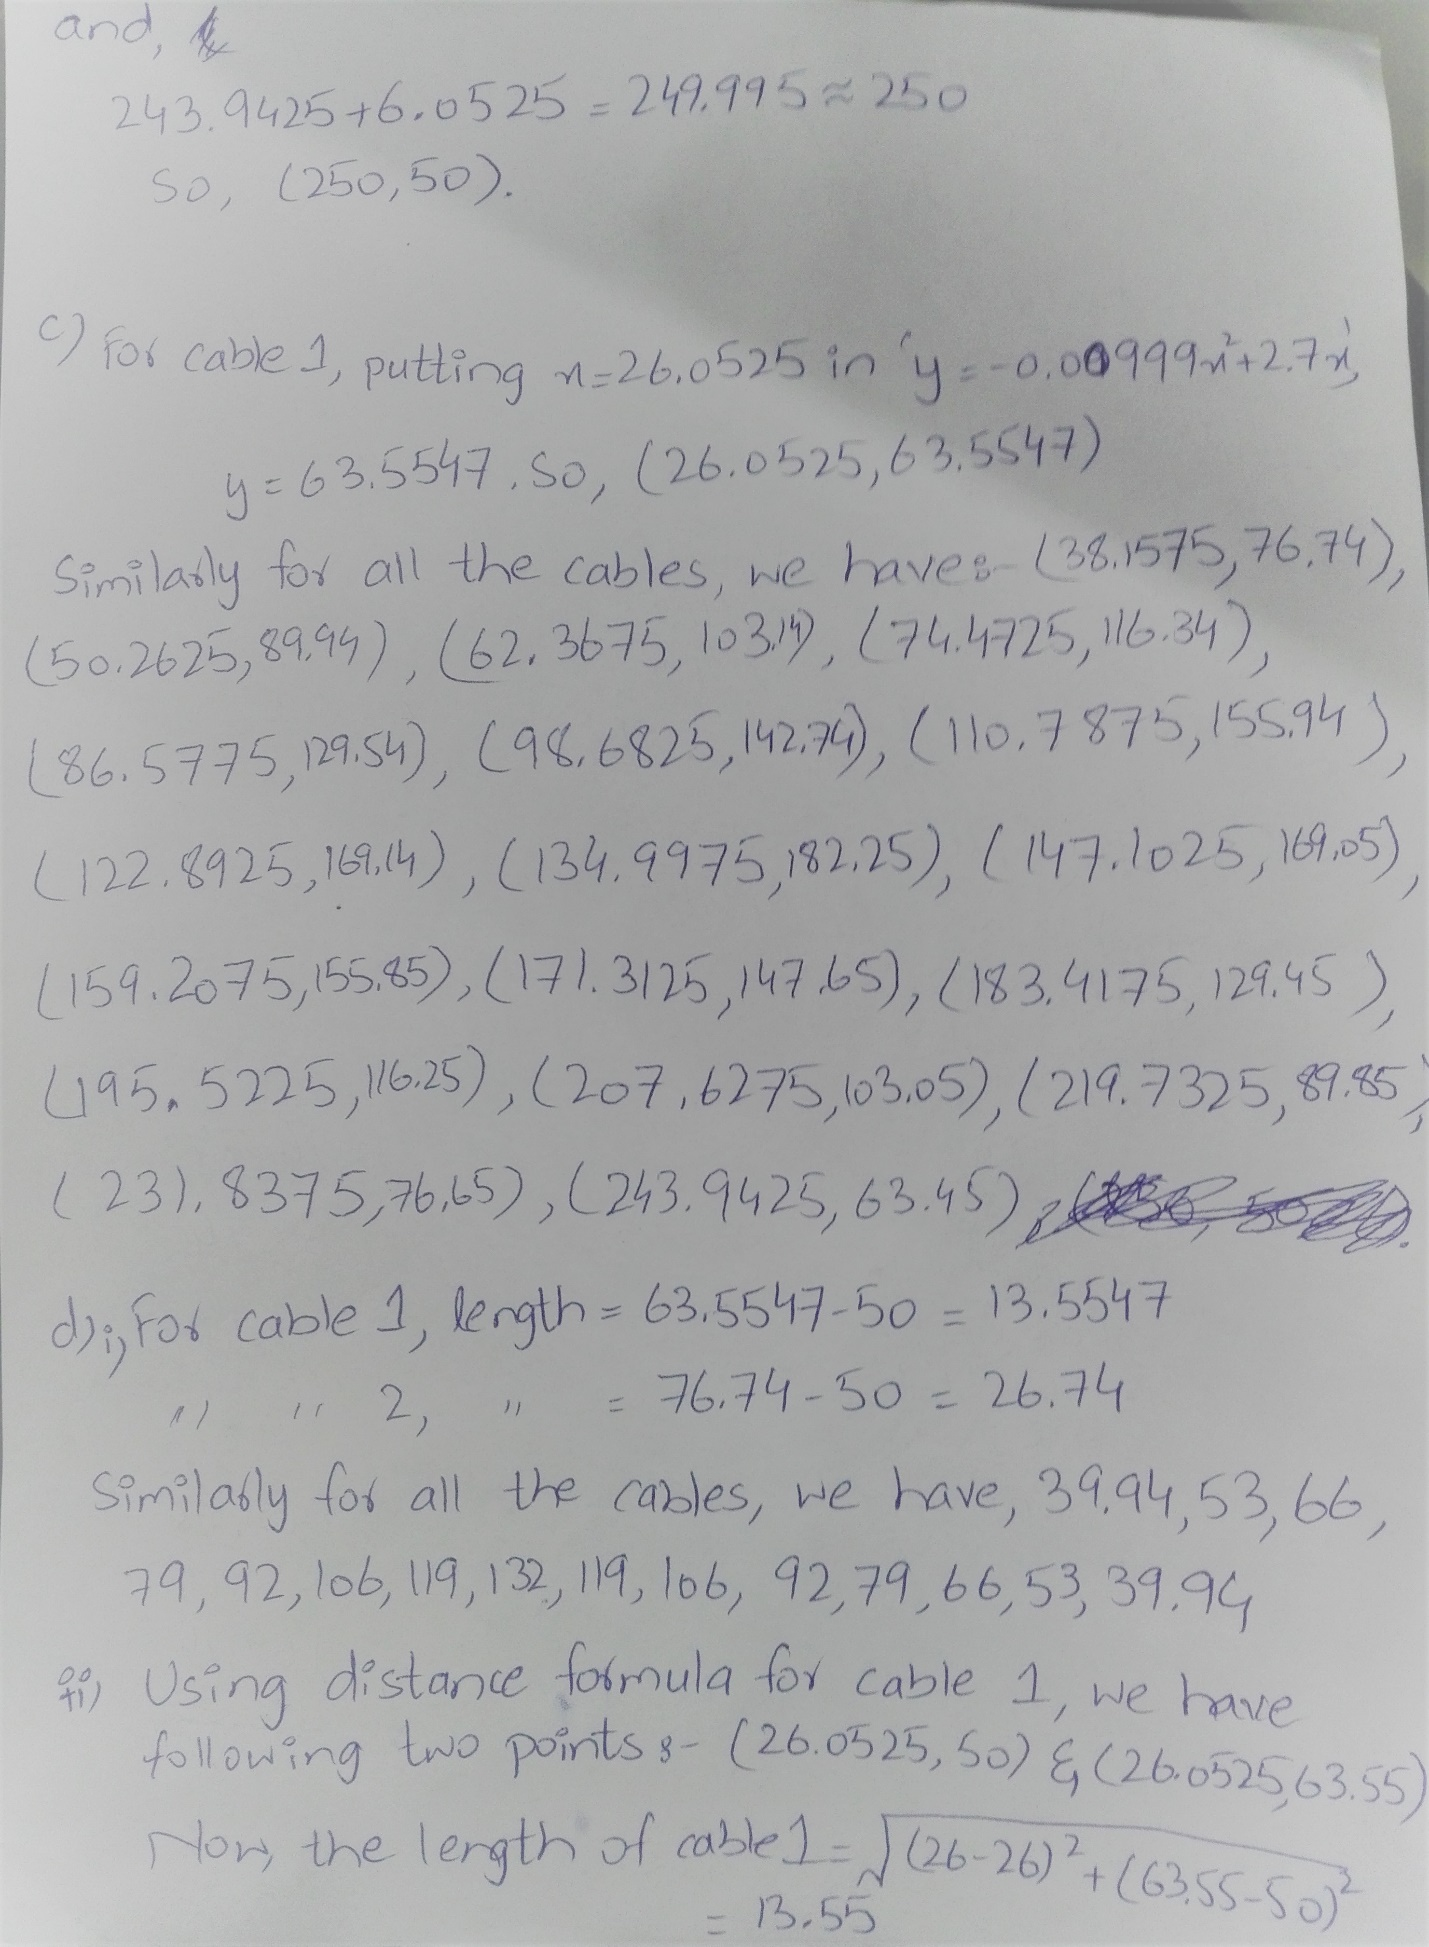 and,
243.9425+6.0525 = 249.995 ≈ 250
So, (250,50).
c) For cable 1, putting x=26.0525 in 'y = -0.00999x²+2.7x',
y = 63.5547. So, (26.0525, 63.5547)
Similarly for all the cables, we have:- (38.1575, 76.74),
(50.2625, 89.94), (62.3675, 103.14), (74.4725, 116.34),
(86.5775, 129.54), (98.6825, 142.74), (110.7875, 155.94),
(122.8925, 169.14), (134.9975, 182.25), (147.1025, 169.05),
(159.2075, 155.85), (171.3125, 147.65), (183.4175, 129.45),
(195.5225, 116.25), (207.6275, 103.05), (219.7325, 89.85),
(231.8375, 76.65), (243.9425, 63.45)
d) i) For cable 1, length = 63.5547-50 = 13.5547
" " 2, " = 76.74-50 = 26.74
Similarly for all the cables, we have, 39.94, 53, 66,
79, 92, 106, 119, 132, 119, 106, 92, 79, 66, 53, 39.94
ii) Using distance formula for cable 1, we have
following two points :- (26.0525, 50) & (26.0525, 63.55)
Now, the length of cable 1 = √(26-26)² + (63.55-50)²
= 13.55